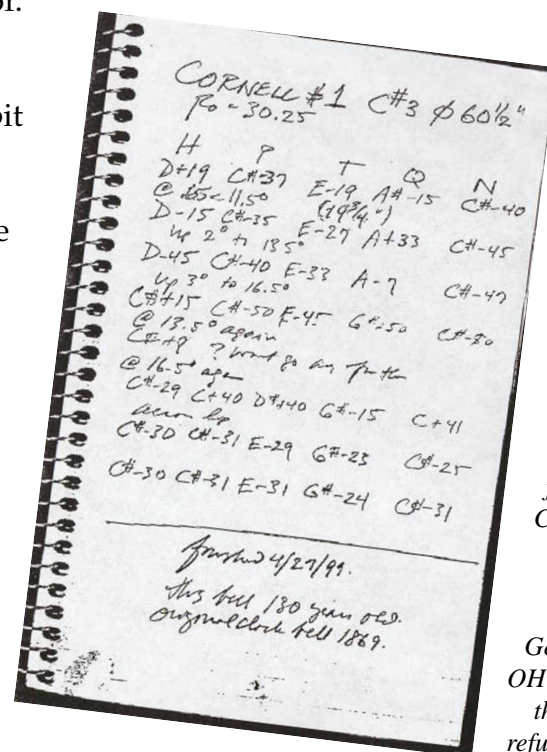 or.
bit
e
CORNELL #1 C#3 ø 60½"
30.25
H P T Q N
D+19 C#-37 E-19 A#-15 C#-40
@ 11.5° (19¾")
D-15 C#-35 E-27 A+33 C#-45
up 2° to 13.5°
D-45 C#-40 E-33 A-7 C#-47
up 3° to 16.5°
C#+15 C#-50 E-45 G#+50 C#-80
@ 13.5° again
C#+9 ? Won't go any further
@ 16.5° again
C#-29 C+40 D#+40 G#-15 C+41
across lip
C#-30 C#-31 E-29 G#-23 C#-25
C#-30 C#-31 E-31 G#-24 C#-31
finished 4/27/99.
this bell 130 years old.
original clock bell 1869.
C
Ge
OH
th
refu